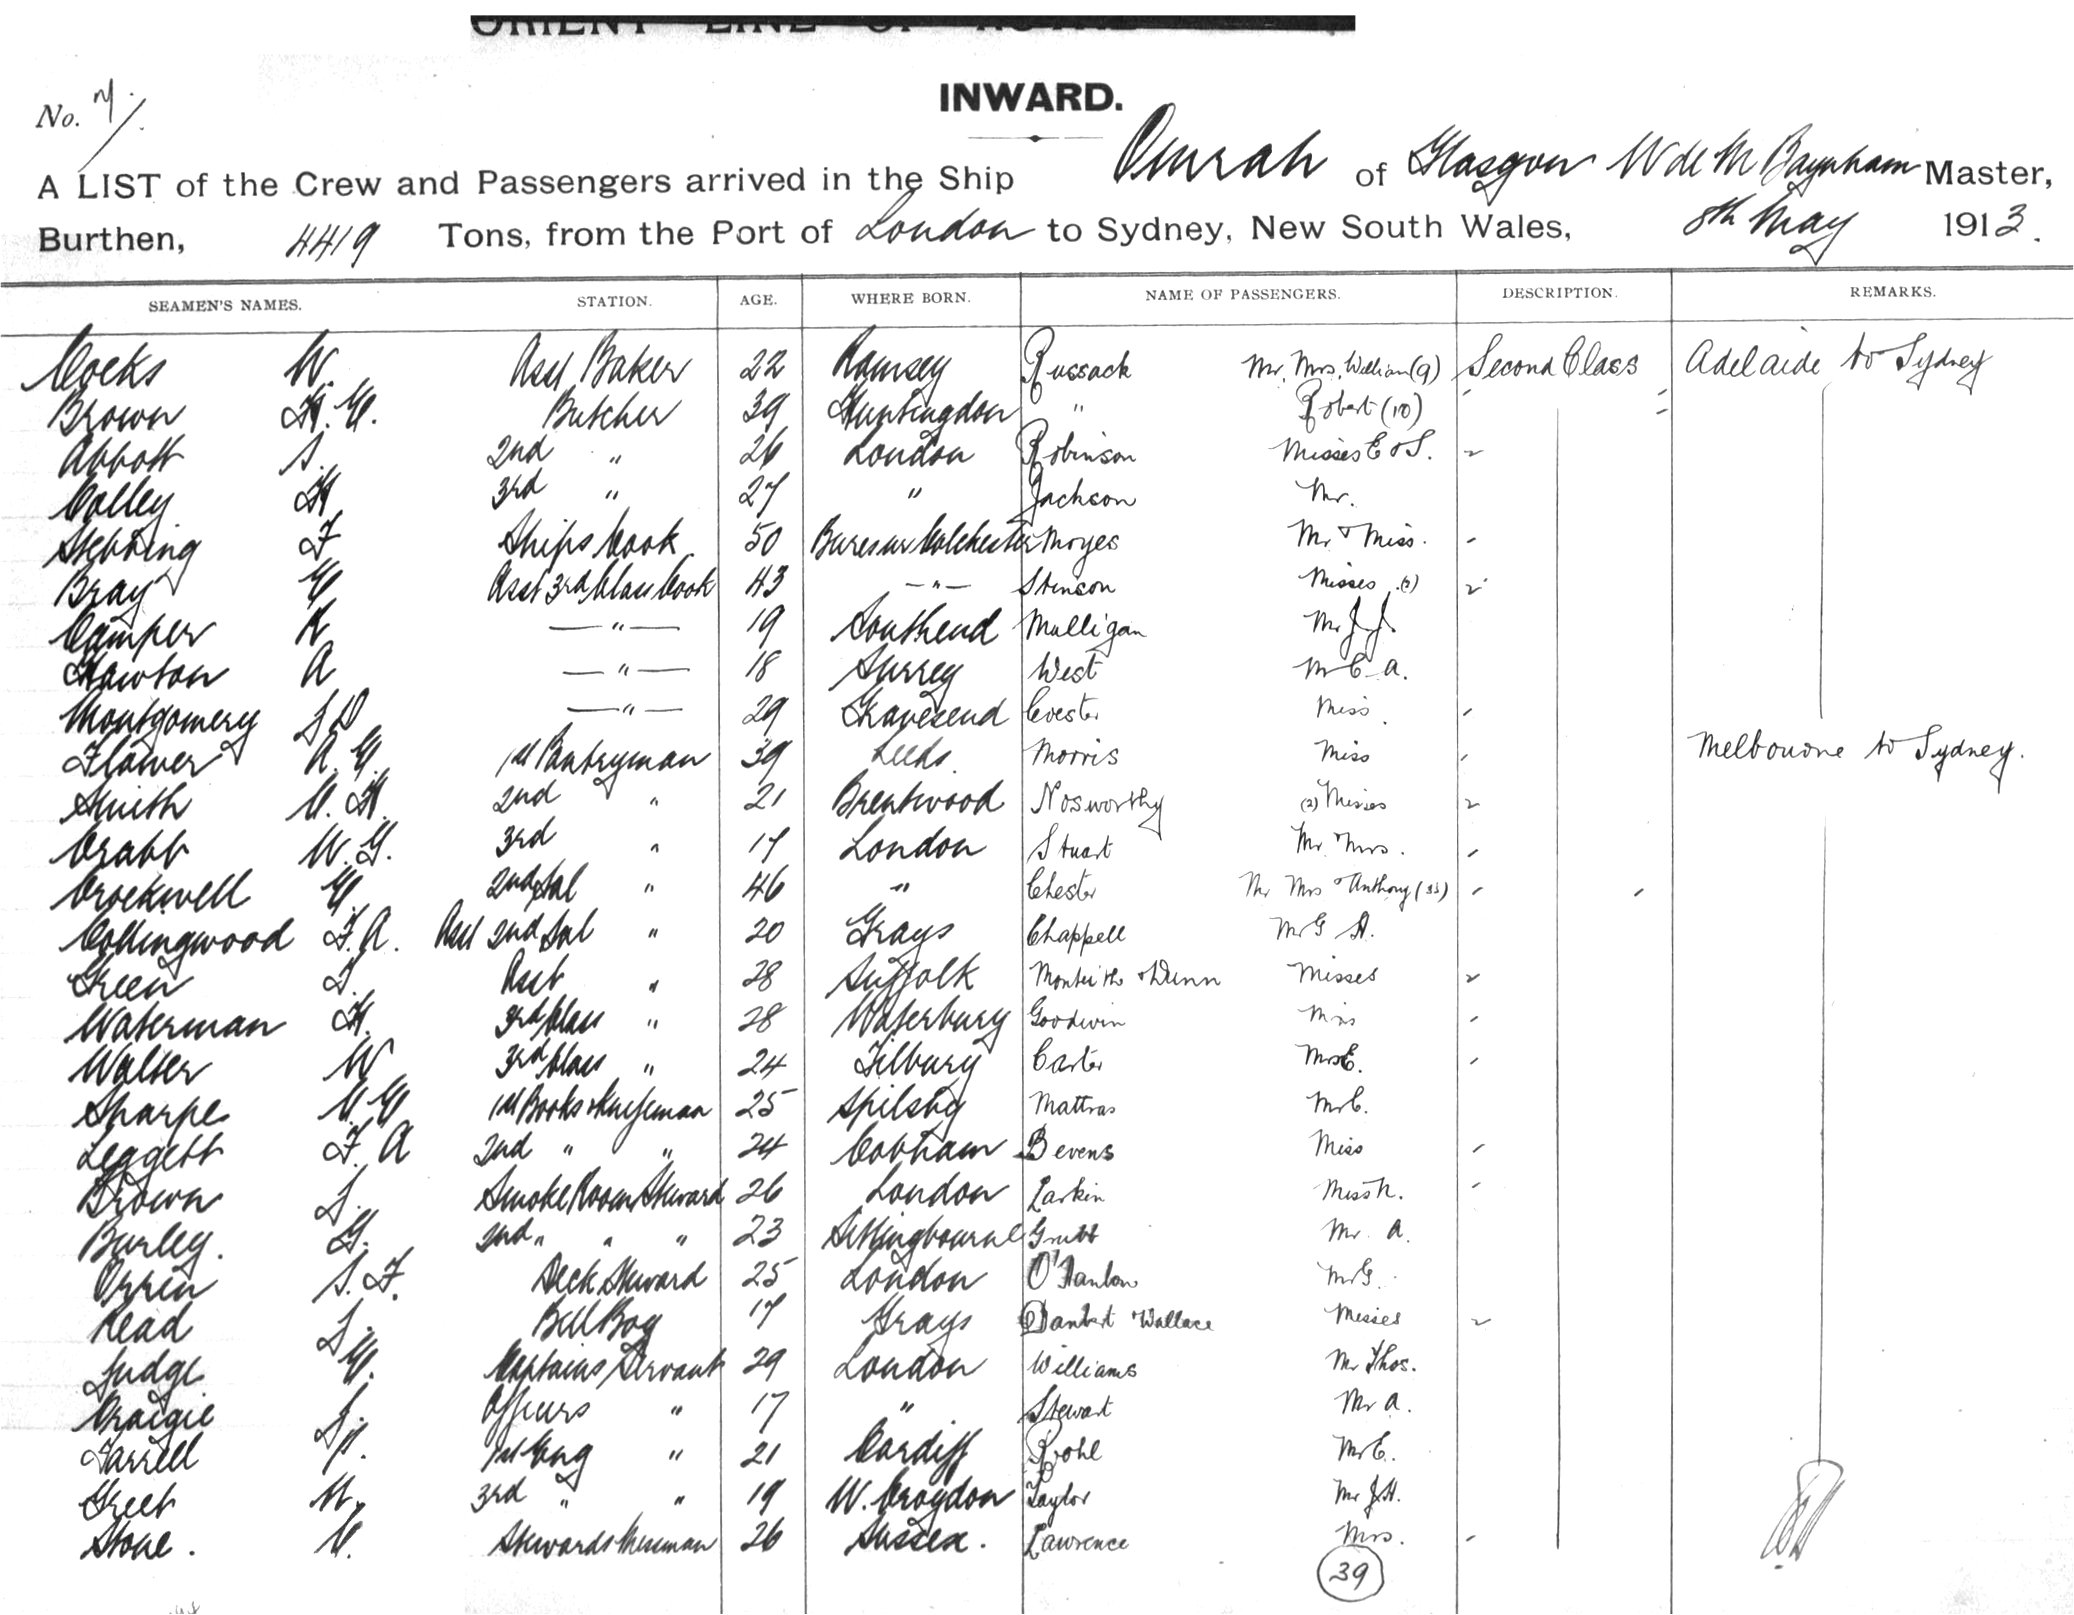 ORIENT LINE OF ROYAL
INWARD.
No. 7/.
A LIST of the Crew and Passengers arrived in the Ship Omrah of Glasgow W de M Baynham Master,
Burthen, 4419 Tons, from the Port of London to Sydney, New South Wales, 8th May 1913.
SEAMEN'S NAMES. STATION. AGE. WHERE BORN. NAME OF PASSENGERS. DESCRIPTION. REMARKS.
Cocks W. Asst Baker 22 Ramsey Russack Mr, Mrs, William (9) Second Class Adelaide to Sydney
Brown H. E. Butcher 39 Huntingdon " Robert (10)
Abbott S. 2nd " 26 London Robinson Misses E & S.
Colley H 3rd " 27 " Jackson Mr.
Stebbing F Ships Cook 50 Bures nr Colchester Moyes Mr & Miss.
Bray E Asst 3rd Class Cook 43 —"— Stinson Misses (2)
Camper R —"— 19 Southend Mulligan Mr J. J.
Hawton A —"— 18 Surrey West Mr C A.
Montgomery J D —"— 29 Gravesend Coester Miss
Flower A. E. 1st Pantryman 39 Leeds. Morris Miss Melbourne to Sydney.
Smith C. H. 2nd " 21 Brentwood Nosworthy (2) Misses
Crabb W. G. 3rd " 17 London Stuart Mr. & Mrs.
Crockwell E. 2nd Sal " 46 " Chester Mr Mrs & Anthony
Collingwood F. A. Asst 2nd Sal " 20 Grays Chappell Mr G H.
Green J. Asst " 28 Suffolk Monteith & Dunn Misses
Waterman H. 3rd Class " 28 Waterbury Goodwin Miss
Walter W 3rd Class " 24 Tilbury Carter Mrs E.
Sharpe C. E 1st Boots & Knifeman 25 Spilsby Mattras Mr C.
Leggett F. A 2nd " " 24 Cobham Bevens Miss
Brown J. Smoke Room Steward 26 London Larkin Miss N.
Burley. G. 2nd " " " 23 Sittingbourne Grubb Mr. A.
Orrin S. F. Deck Steward 25 London O'Hanlon Mr G.
Read J. Bell Boy 17 Grays & Wallace Misses
Judge E. Captains Servant 29 London Williams Mr Thos.
Craigie J. Officers " 17 " Stewart Mr A.
Farrell P. 1st Eng " 21 Cardiff Rohl Mr C.
Greet W. 3rd " " 19 W. Croydon Taylor Mr J H.
Stone. C. Stewards Messman 26 Sussex. Lawrence Mrs.
39